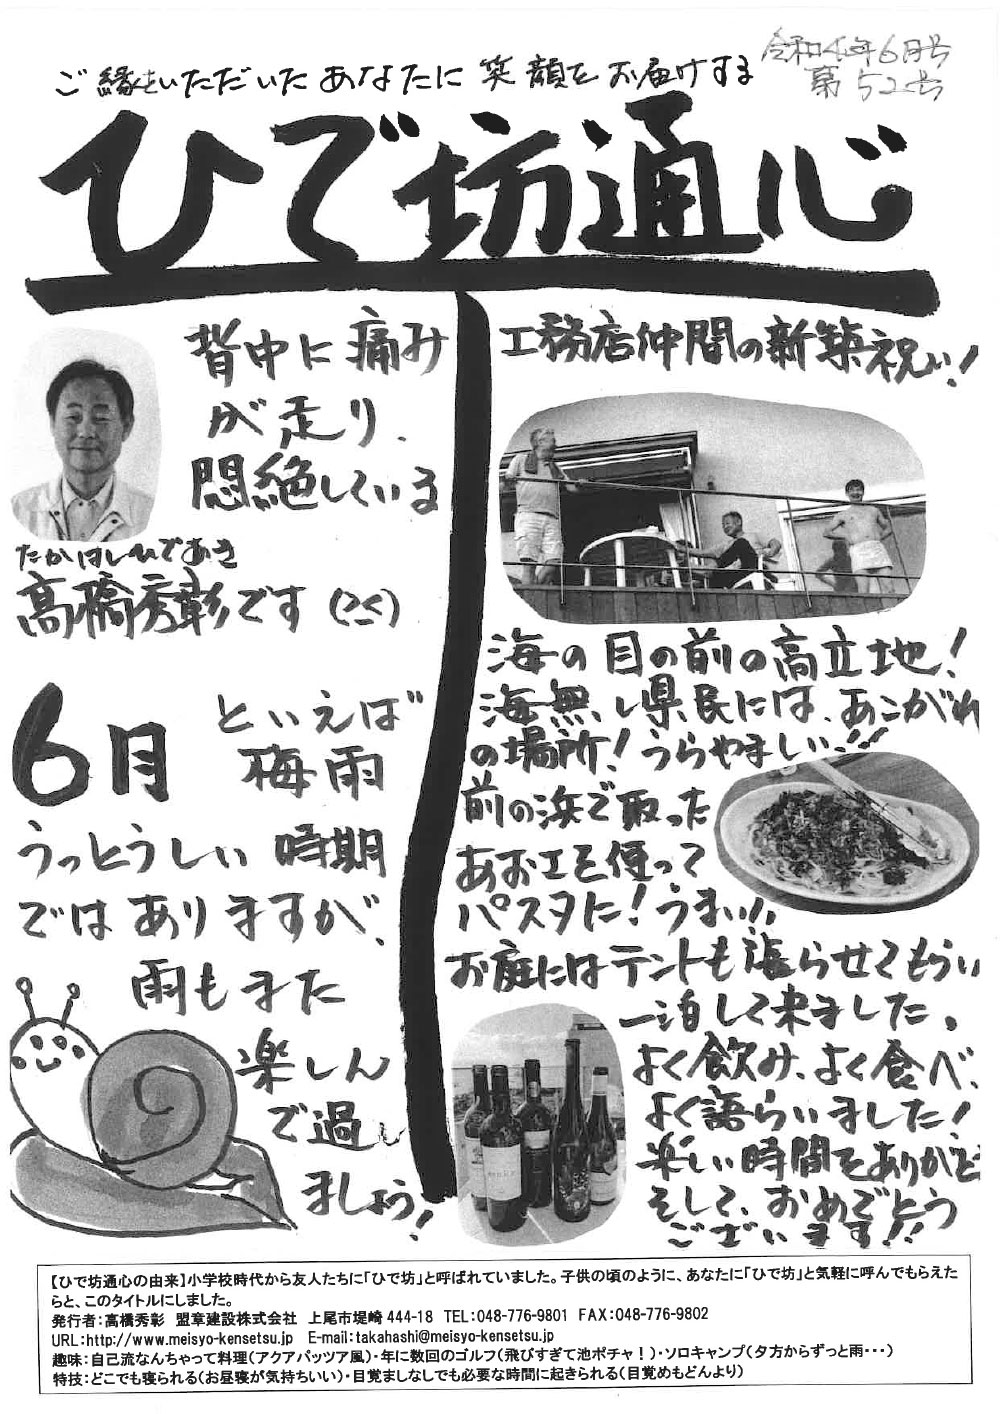 令和4年6月号
第52号
ご縁をいただいたあなたに笑顔をお届けする
ひで坊通心
背中に痛み
が走り、
悶絶している
たかはしひであき
髙橋秀彰です(>_<)
6月
といえば
梅雨
うっとうしい時期
ではありますが、
雨もまた
楽しん
で過し
ましょう!
工務店仲間の新築祝い!
海の目の前の高立地!
海無し県民には、あこがれ
の場所!うらやましい!!
前の浜で取った
あおエを使って
パスタに!うまい!!
お庭にはテントも張らせてもらい
一泊して来ました。
よく飲み、よく食べ、
よく語らいました!
楽しい時間をありがと
そして、おめでとう
ございます!!
【ひで坊通心の由来】小学校時代から友人たちに「ひで坊」と呼ばれていました。子供の頃のように、あなたに「ひで坊」と気軽に呼んでもらえた
らと、このタイトルにしました。
発行者:髙橋秀彰 盟章建設株式会社 上尾市堤崎444-18 TEL:048-776-9801 FAX:048-776-9802
URL:http://www.meisyo-kensetsu.jp E-mail:takahashi@meisyo-kensetsu.jp
趣味:自己流なんちゃって料理(アクアパッツア風)・年に数回のゴルフ(飛びすぎて池ポチャ!)・ソロキャンプ(夕方からずっと雨・・・)
特技:どこでも寝られる(お昼寝が気持ちいい)・目覚ましなしでも必要な時間に起きられる(目覚めもどんより)